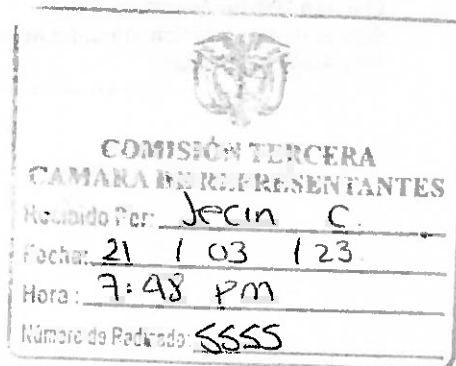 COMISIÓN TERCERA
CAMARA DE REPRESENTANTES
Recibido Por: Jecin C.
Fecha: 21 / 03 / 23
Hora: 7:48 pm
Número de Radicado: 5555